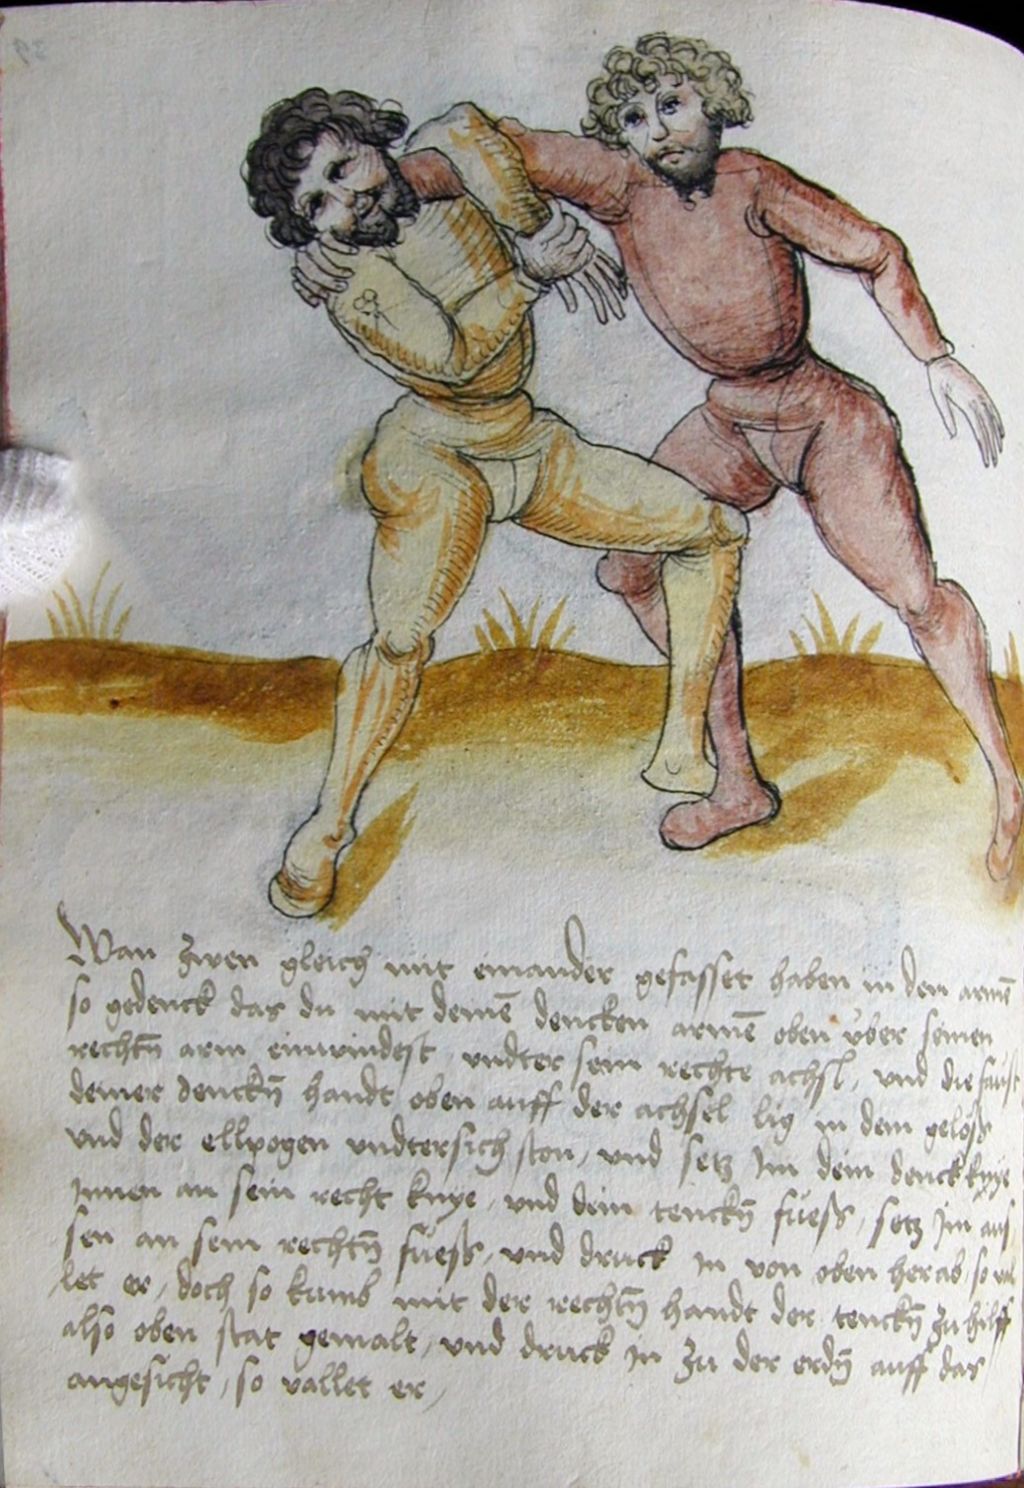 Wan zwen gleich mit einander gefasset haben in den armē
so gedenck das du mit deinē dencken armē oben vber seinen
rechtñ arm einwindest, vndter sein rechte achsl, vnd die faust
deiner denckñ handt oben auff der achsel lig in dem gelöß
vnd der ellpogen vndtersich ston, vnd setz Im dein denck knye
Innen an sein recht knye, vnd dein tenckñ füeß, setz Im aus
sen an sein rechtñ füeß, vnd druck in von oben herab, so val
let er, doch so kumb mit der rechtñ handt der tenckñ zu hilff
also oben stat gemalt, vnd druck in zu der erdñ auff das
angesicht, so vallet er,